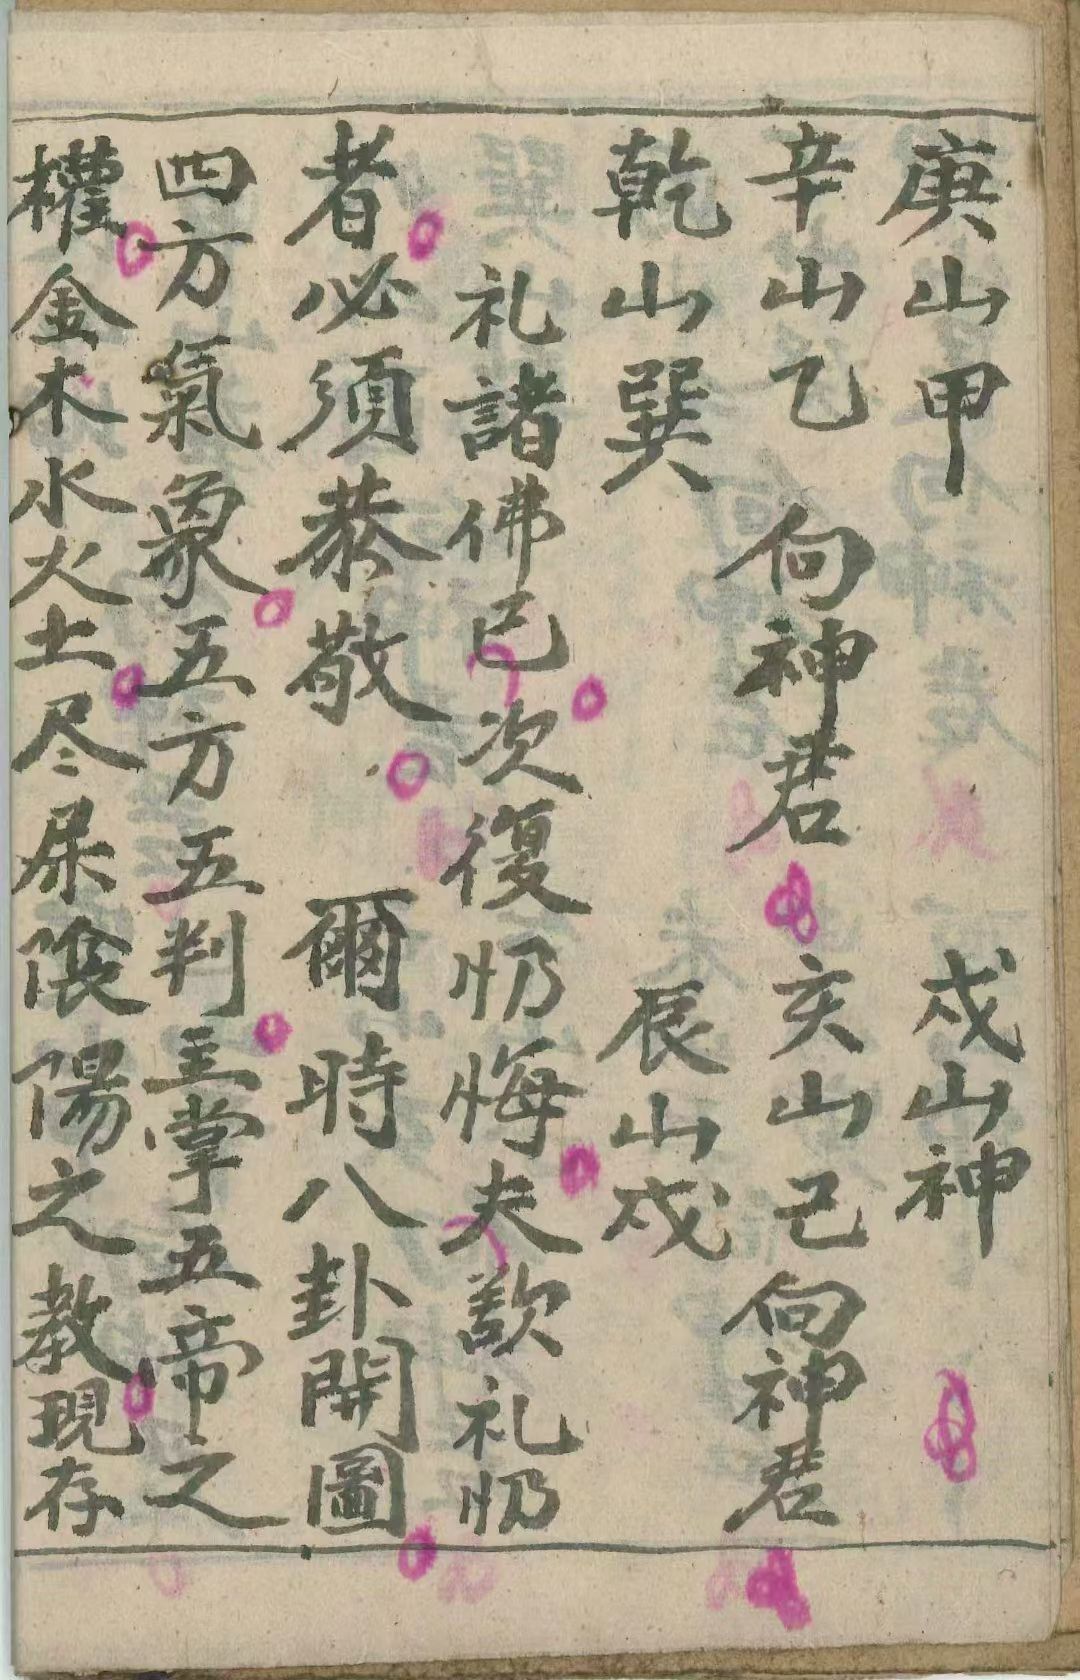 庚山甲　戍山神
辛山乙　向神君　亥山己向神君
乾山巽　辰山戍
礼諸佛已次復忉悔夫歆礼忉
者必須恭敬　爾時八卦開圖
四方氣象五方五判主掌五帝之
權金木水火土尽杲隂陽之教現存